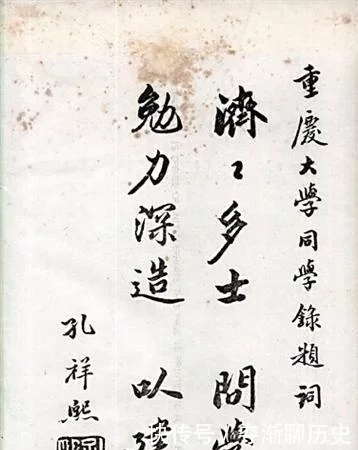 重慶大學同學錄題詞
濟〻多士 問學
勉力深造 以建
孔祥熙
快传号/李渐聊历史